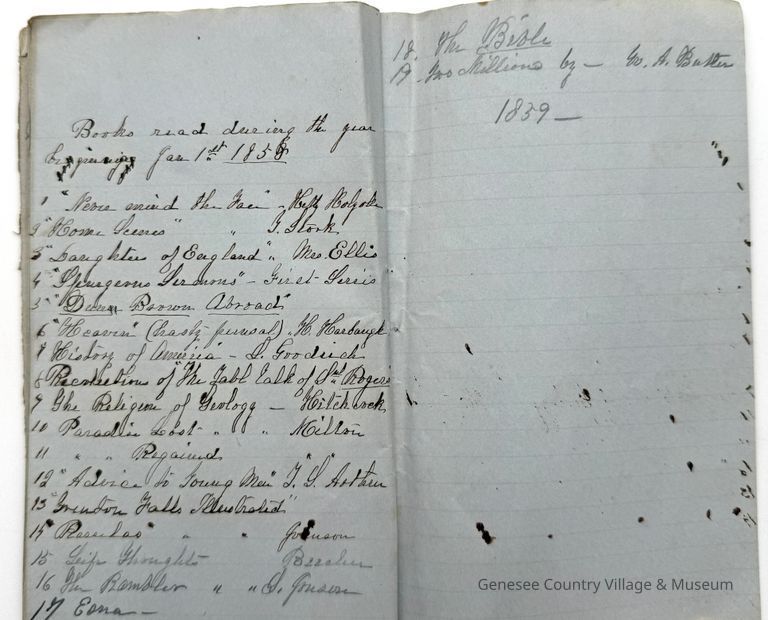 Books read during the year
beginning Jan 1st 1858
1 "Never mind the Face" - Hetty Holyoke
2 "Home Scenes" " T. Stork
3 "Daughters of England" " Mrs. Ellis
4 "Spurgeons Sermons" - First Series
5 "Dunn Brown Abroad"
6 "Heaven" (hasty perusal) " H. Harbaugh
7 History of America - S. Goodrich
8 Recollections of "The Table talk of Sml Rogers
9 The Religion of Geology - Hitchcock
10 Paradise Lost " " Milton
11 " " Regained
12 "Advice to Young Men" T. S. Arthur
13 "Trenton Falls Illustrated"
14 "Rasselas" " " Johnson
15 Life Thoughts Beecher
16 The Rambler " " S. Jonson
17 Edna -
18. The Bible
19. Two Millions by - W. A. Butler
1859 -
Genesee Country Village & Museum